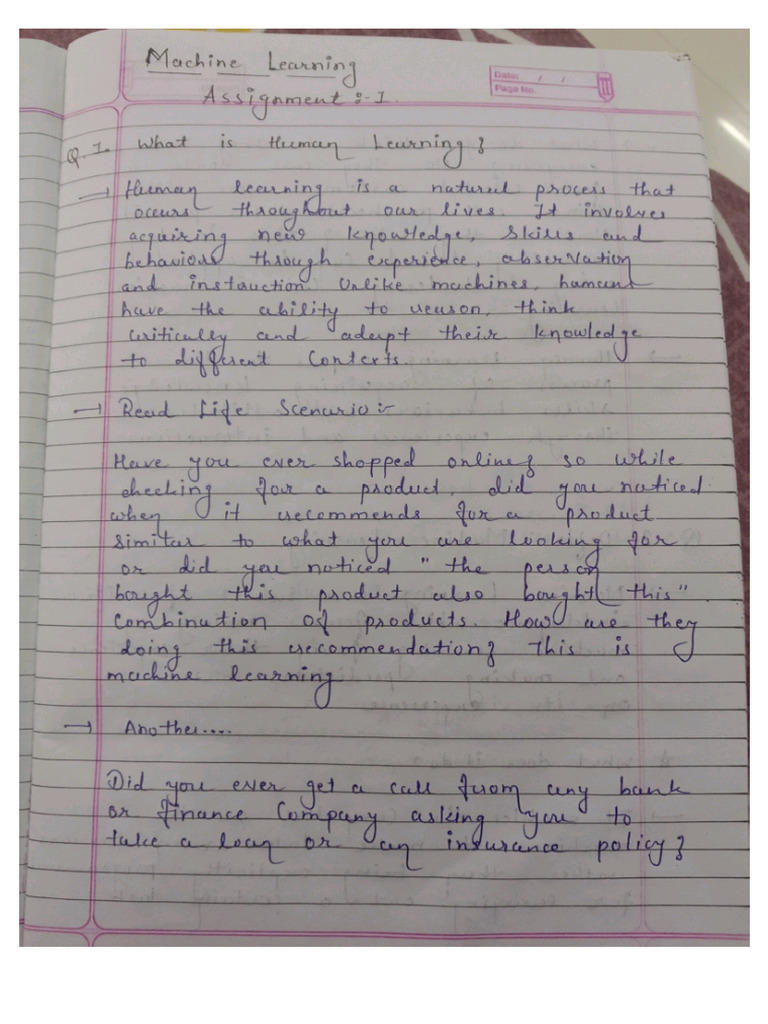 Machine Learning
Assignment :- 1.
Date: / /
Page No.
Q.1. What is Human Learning?
→ Human learning is a natural process that
occurs throughout our lives. It involves
acquiring new knowledge, skills and
behaviour through experience, observation
and instruction. Unlike machines, humans
have the ability to reason, think
critically and adapt their knowledge
to different contexts.
→ Read Life Scenario :-
Have you ever shopped online? so while
checking for a product, did you noticed
when it recommends for a product
similar to what you are looking for
or did you noticed " the person
bought this product also bought this"
Combination of products. How are they
doing this recommendation? This is
machine learning
→ Another....
Did you ever get a call from any bank
or finance Company asking you to
take a loan or an insurance policy?